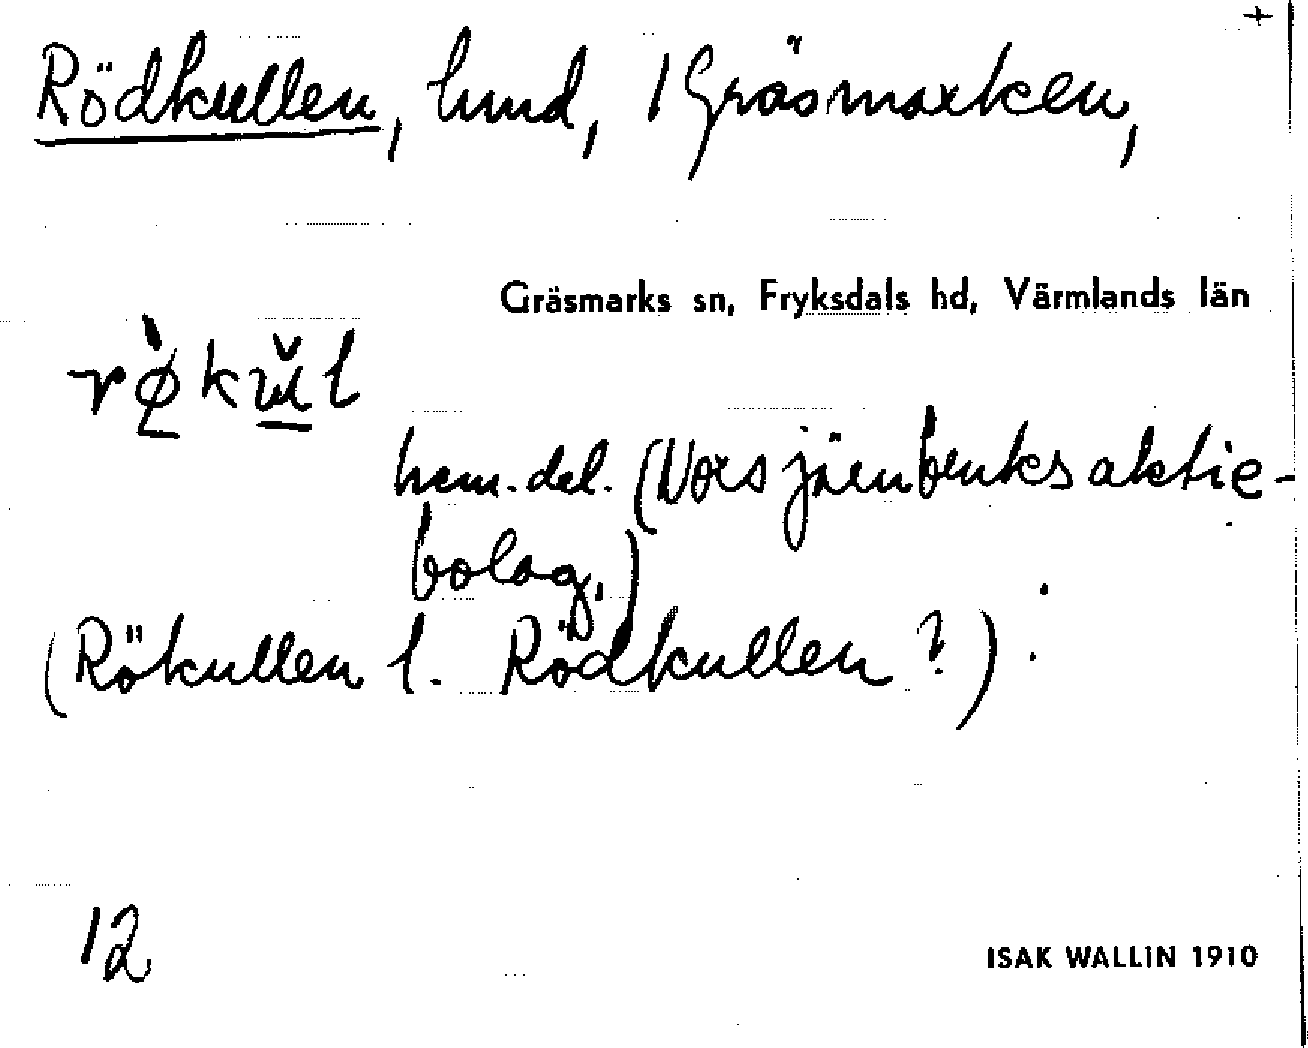 +
Rödkullen, hmd, 1 Gräsmarken,
Gräsmarks sn, Fryksdals hd, Värmlands län
hem. del. (Nors järnbruks aktie-
bolag.)
(Rökullen l. Rödkullen ?)
12
ISAK WALLIN 1910